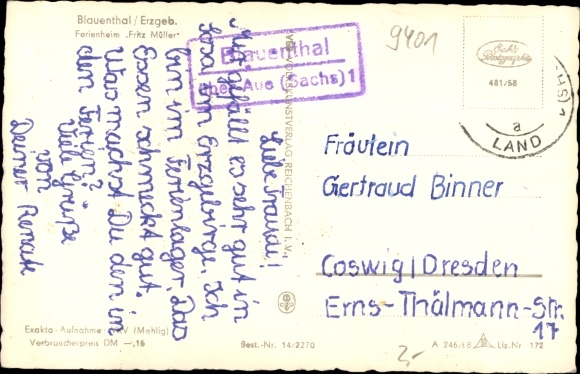 Blauenthal / Erzgeb.
Ferienheim „Fritz Müller"
Blauenthal
über Aue (Sachs) 1
9401
Echt
481/58
(HS) 1
a
LAND
Liebe Traudi!
Mir gefällt es sehr gut in
Sosa im Erzgebirge. Ich
bin im Ferienlager. Das
Essen schmeckt gut.
Was machst Du den in
den Ferien? -
Viele Grüße
von
Deiner Renate
VEB VOLKSKUNSTVERLAG REICHENBACH I. V.
Fräulein
Gertraud Binner
Coswig/Dresden
Erns-Thälmann-Str.
17
Exakta-Aufnahme VKV (Mehlig)
Verbraucherpreis DM —,15
Best.-Nr. 14/2270
A 246/58
Liz.Nr. 172
2,-